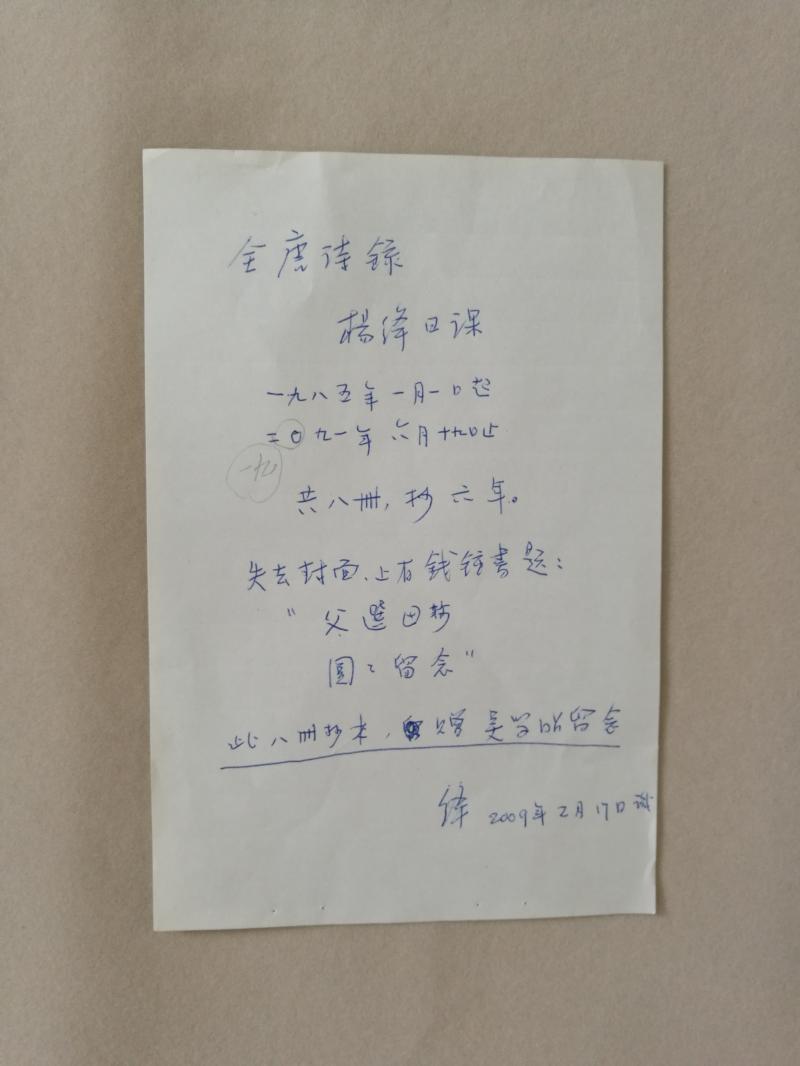 全唐诗録
楊绛日课
一九八五年一月一日起
二〇九一年六月十九日止
一九
共八册，抄六年。
失去封面、上有钱锺書题：
“父選母抄
圆々留念”
此八册抄本，赠吴学昭留念
绛 2009年2月17日识